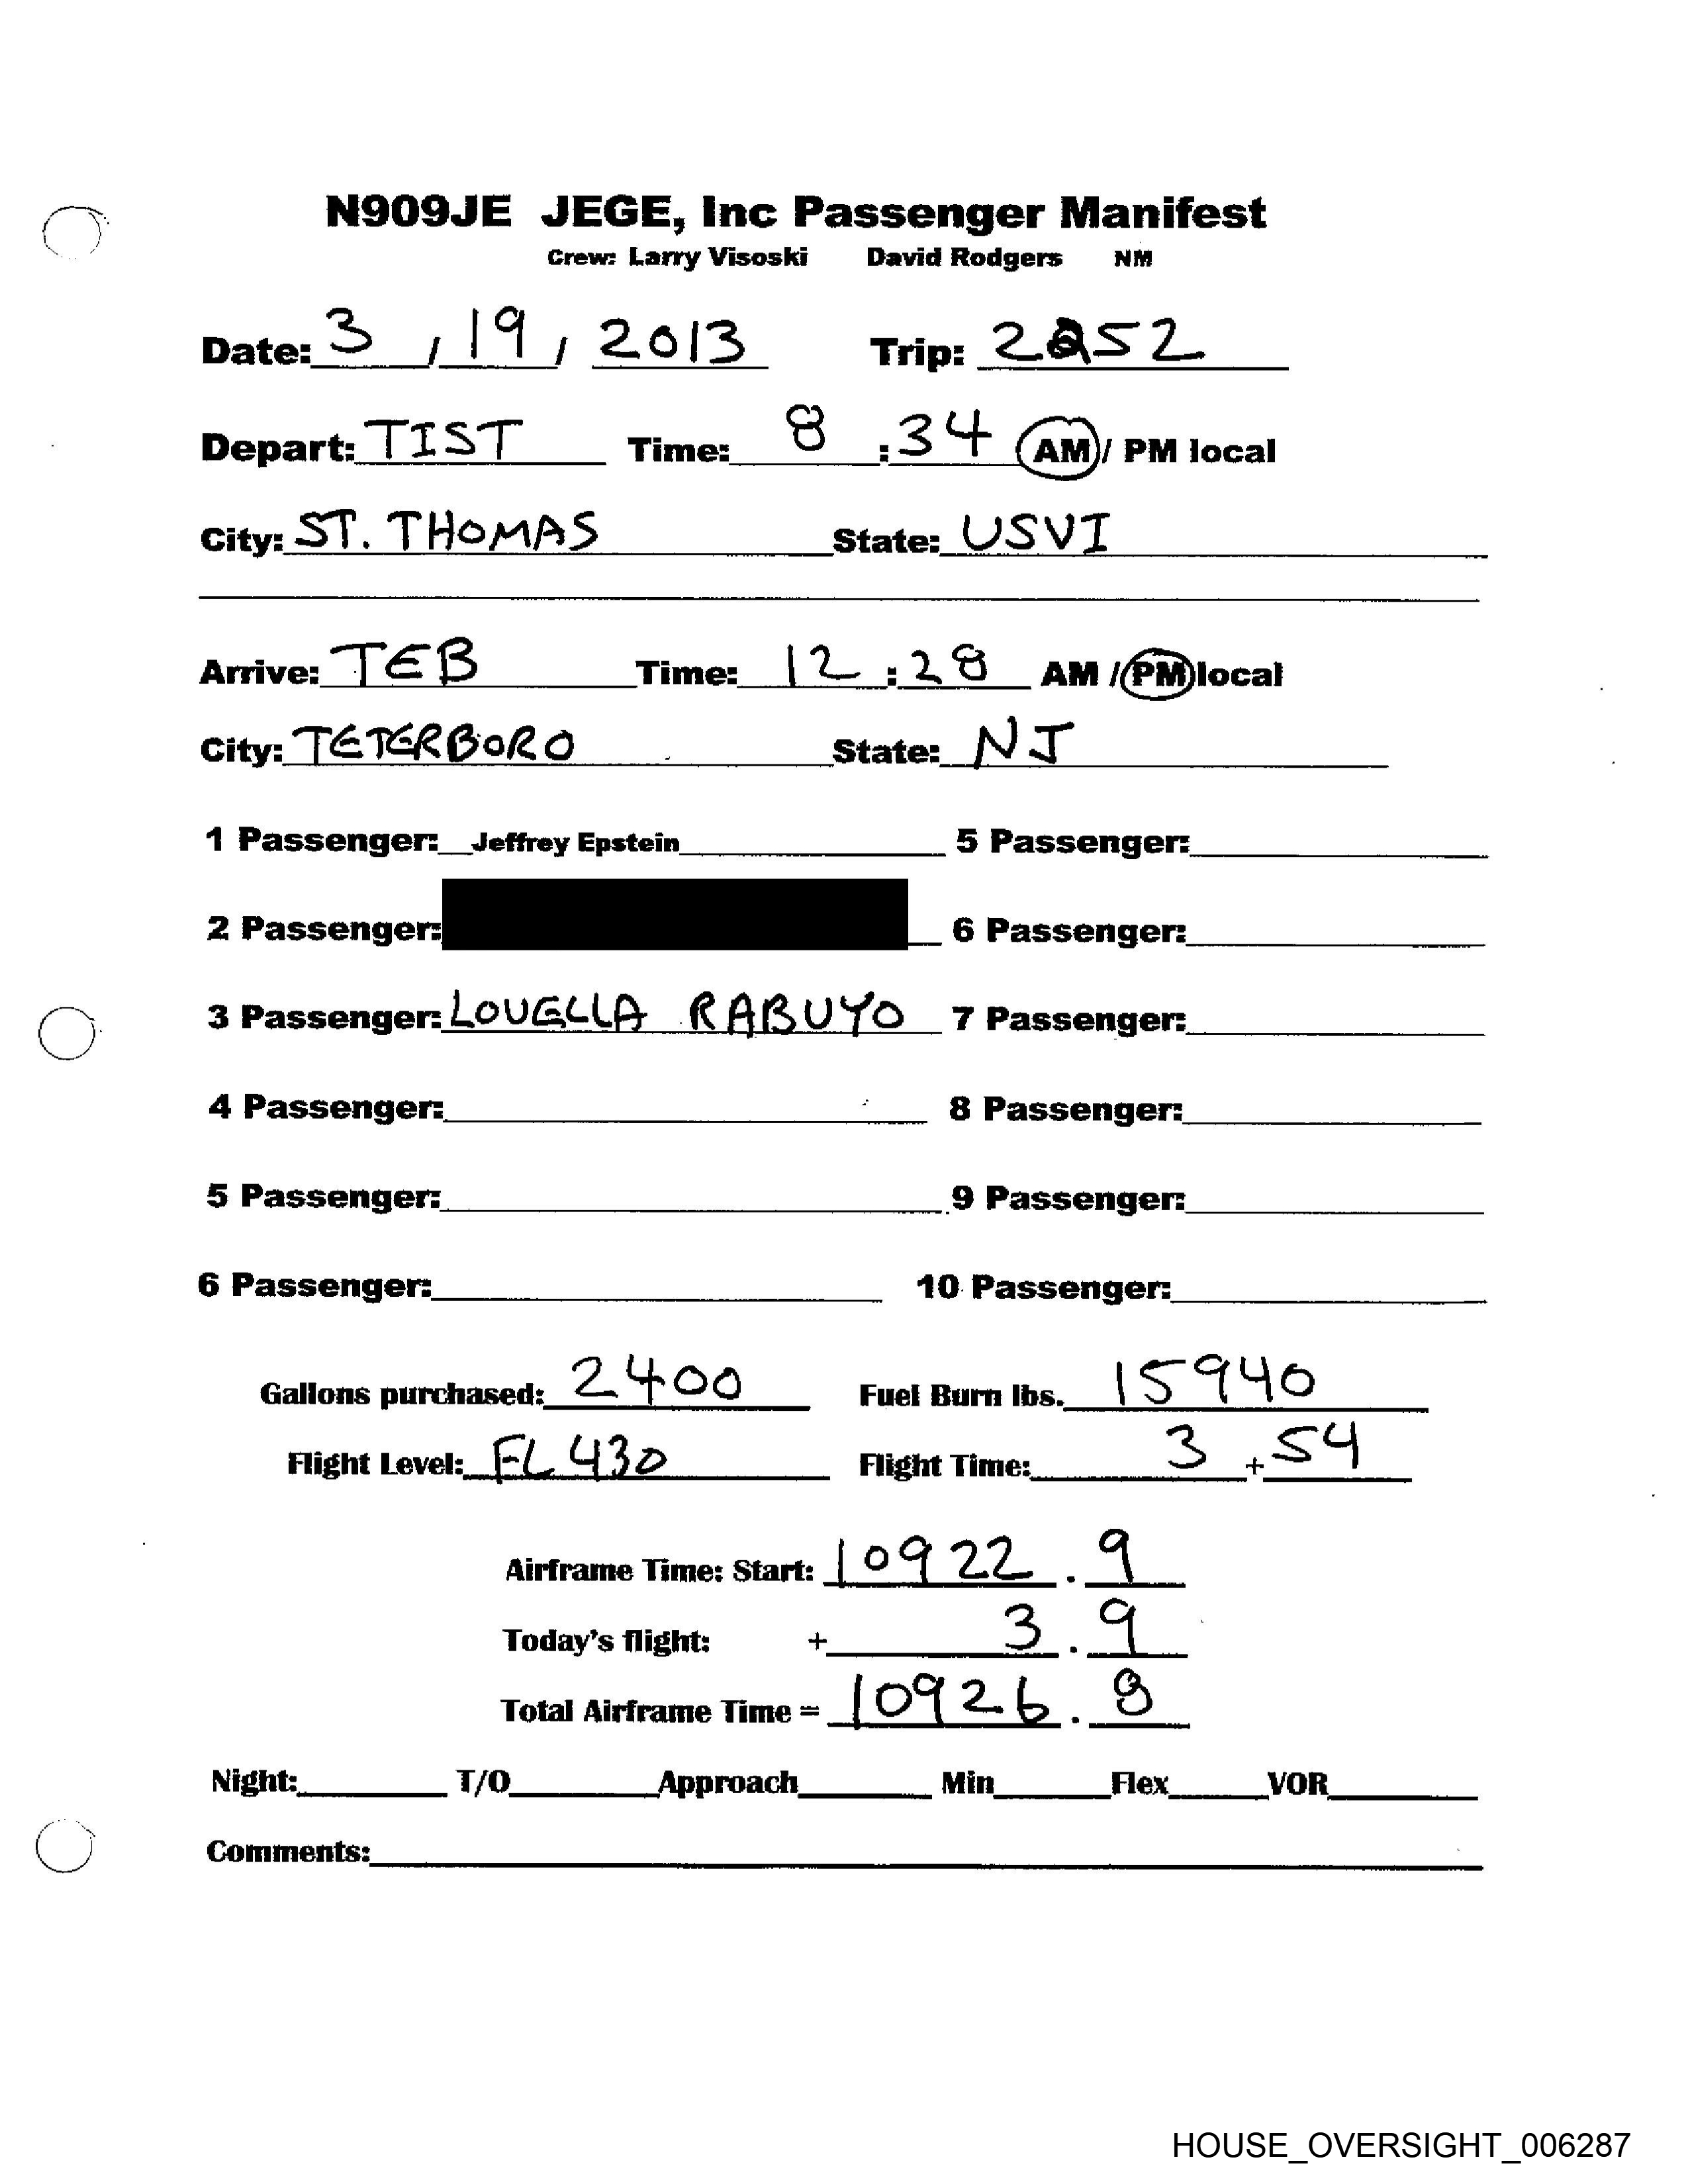 N909JE JEGE, Inc Passenger Manifest
Crew: Larry Visoski David Rodgers NM
Date: 3 / 19 / 2013 Trip: 2252
Depart: TIST Time: 8 : 34 AM / PM local
City: ST. THOMAS State: USVI
Arrive: TEB Time: 12 : 28 AM / PM local
City: TETERBORO State: NJ
1 Passenger: Jeffrey Epstein 5 Passenger:
2 Passenger: 6 Passenger:
3 Passenger: LOUELLA RABUYO 7 Passenger:
4 Passenger: 8 Passenger:
5 Passenger: 9 Passenger:
6 Passenger: 10 Passenger:
Gallons purchased: 2400 Fuel Burn lbs. 15940
Flight Level: FL 430 Flight Time: 3 + 54
Airframe Time: Start: 10922 . 9
Today's flight: + 3 . 9
Total Airframe Time = 10926 . 8
Night: T/O Approach Min Flex VOR
Comments:
HOUSE_OVERSIGHT_006287